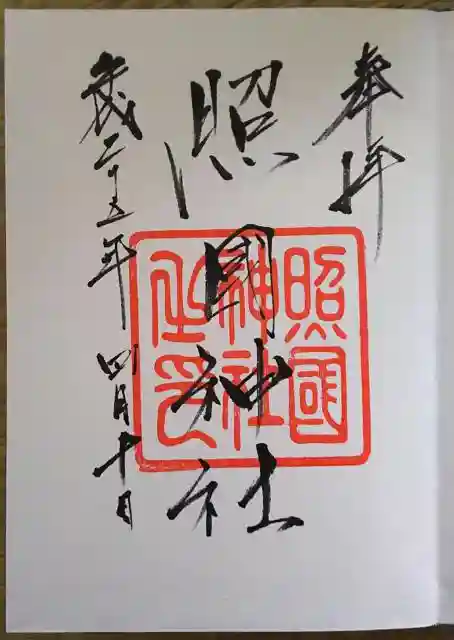 奉拝
照國神社
平成二十五年四月十日
照國
神社
之印